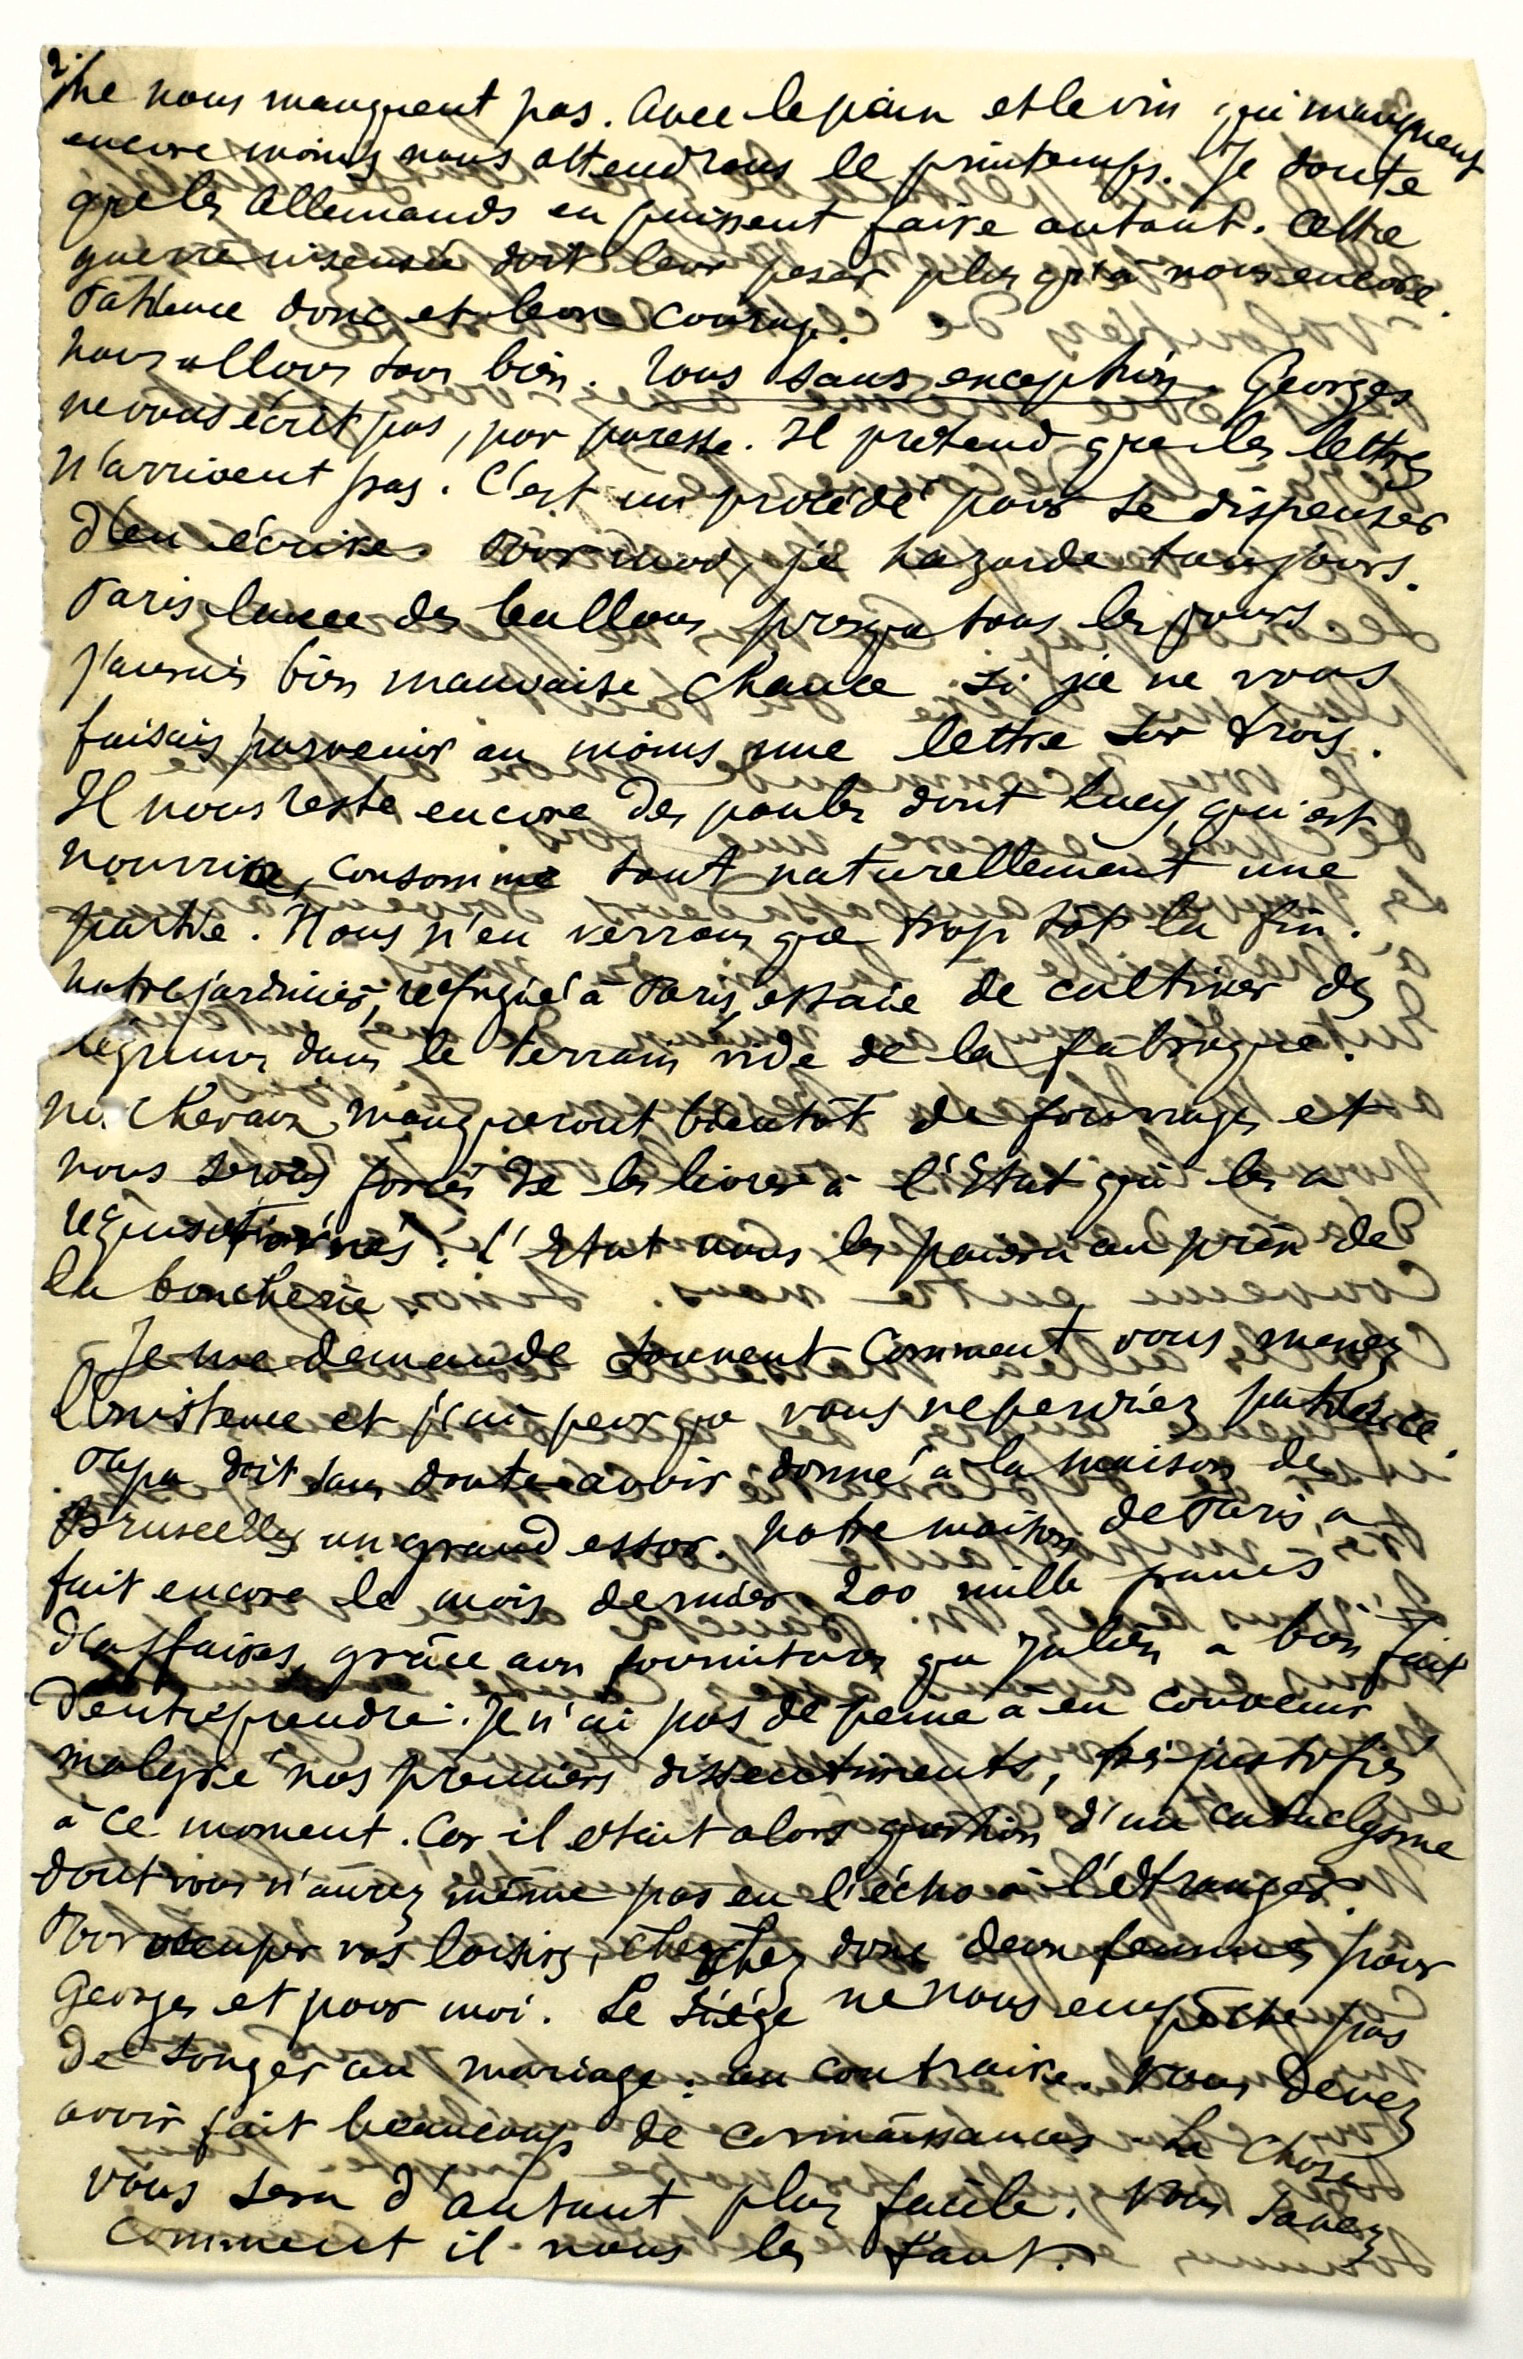 2.
ne nous manquent pas. Avec le pain et le vin qui manquent
encore moins nous attendrons le printemps. Je doute
que les Allemands en puissent faire autant. Cette
guerre insensée doit leur peser plus qu'à nous encore.
Patience donc et bon courage.
Nous allons tous bien. Tous sans exception. Georges
ne vous écrit pas, par paresse. Il prétend que les lettres
n'arrivent pas. C'est un procédé pour se dispenser
d'en écrire. Pour moi, je hazarde toujours.
Paris lance des ballons presque tous les jours
j'aurais bien mauvaise chance si je ne vous
faisais parvenir au moins une lettre sur trois.
Il nous reste encore des poules dont Lucy, qui est
nourrice, consomme tout naturellement une
partie. Nous n'en verrons que trop tôt la fin.
Notre jardinier, réfugié à Paris, essaie de cultiver des
légumes dans le terrain vide de la fabrique.
Nos chevaux manqueront bientôt de fourrages et
nous serons forcés de les livrer à l'Etat qui les a
réquisitionnés. L'Etat nous les paiera au prix de
la boucherie.
Je me demande souvent comment vous menez
l'existence et j'ai peur que vous ne perdiez patience.
Papa doit sans doute avoir donné à la maison de
Bruxelles un grand essor. Notre maison de Paris a
fait encore le mois dernier 200 mille francs
d'affaires, grâce aux fournitures que Julien a bien fait
d'entreprendre. Je n'ai pas de peine à en convenir
malgré nos premiers dissentiments, très justifiés
à ce moment. Car il était alors question d'un cataclysme
dont vous n'aurez même pas eu l'écho à l'étranger.
Pour occuper vos loisirs, cherchez donc deux femmes pour
Georges et pour moi. Le siége ne nous empêche pas
de songer au mariage. au contraire. Vous devez
avoir fait beaucoup de connaissances. La chose
vous sera d'autant plus facile. Vous savez
comment il nous les faut.